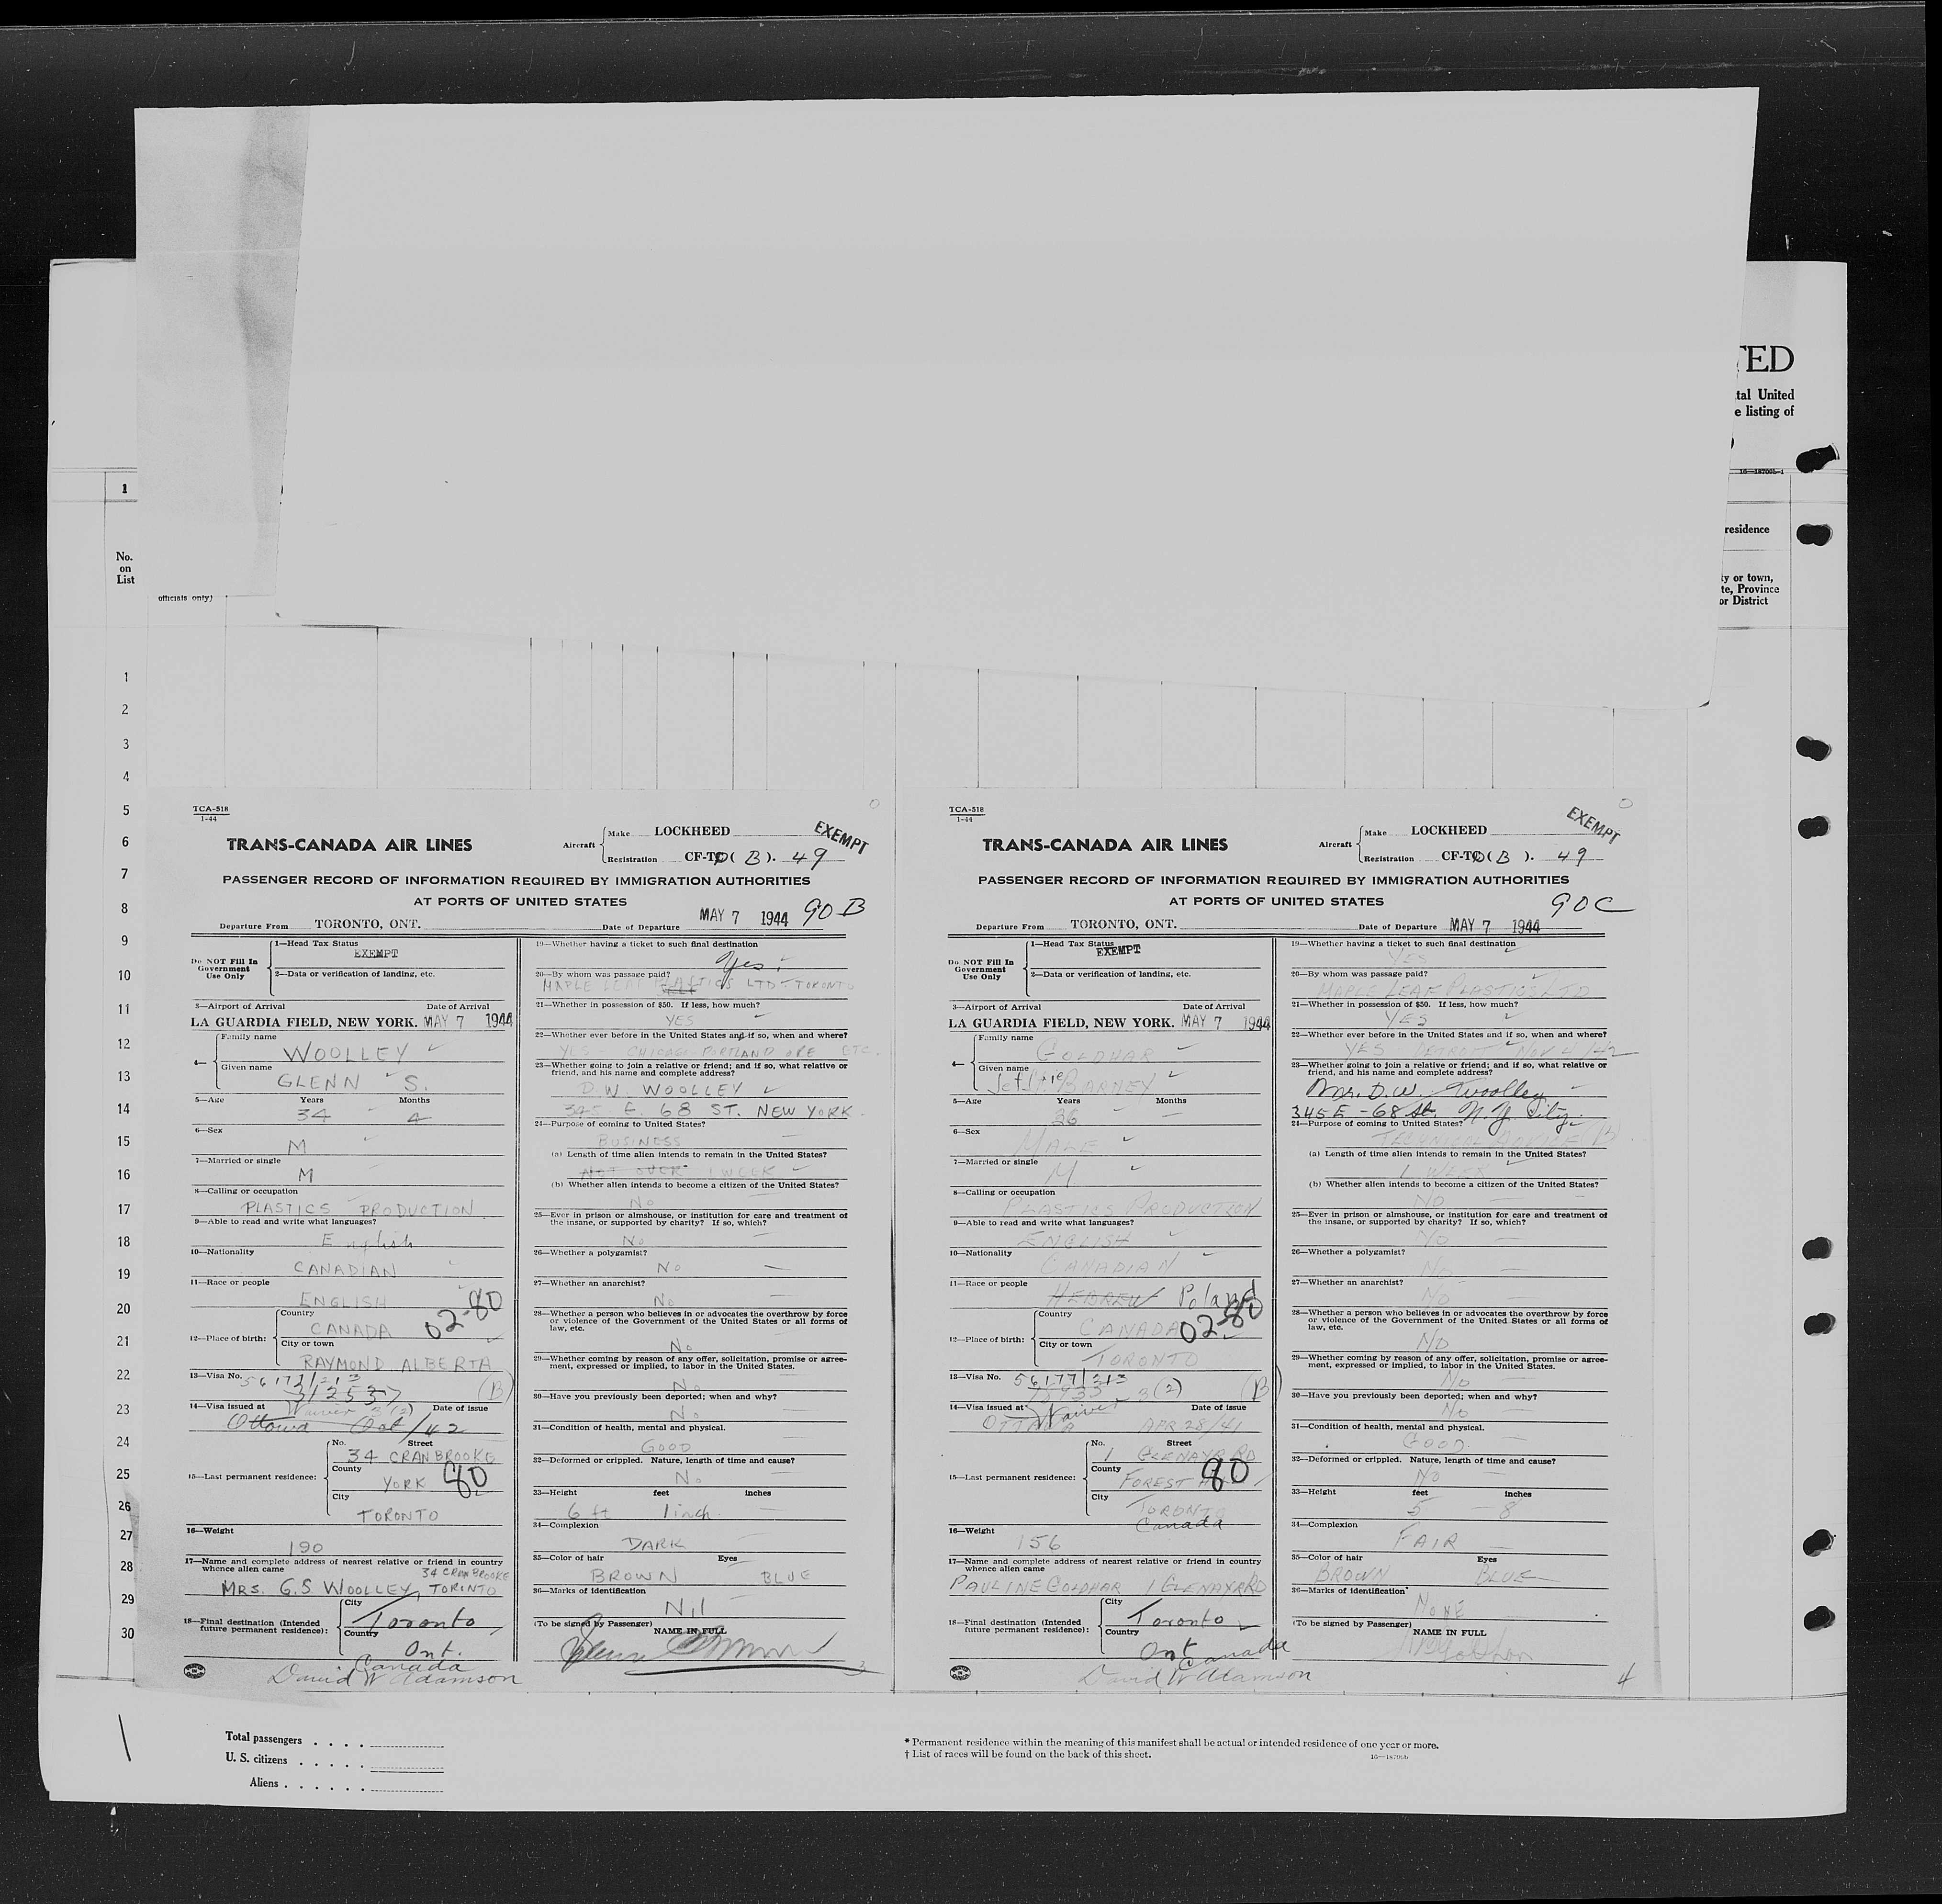 TED
tal United
e listing of
16—18706b-1
1
residence
No.
on
List
y or town,
te, Province
or District
officials only)
1
2
3
4
5
6
7
8
9
10
11
12
13
14
15
16
17
18
19
20
21
22
23
24
25
26
27
28
29
30
TCA-518
1-44
TRANS-CANADA AIR LINES
Aircraft
Make LOCKHEED
EXEMPT
Registration CF-TC ( B ). 49
PASSENGER RECORD OF INFORMATION REQUIRED BY IMMIGRATION AUTHORITIES
AT PORTS OF UNITED STATES
90 B
Departure From TORONTO, ONT. Date of Departure MAY 7 1944
Do NOT Fill In
Government
Use Only
1—Head Tax Status
EXEMPT
2—Data or verification of landing, etc.
3—Airport of Arrival Date of Arrival
LA GUARDIA FIELD, NEW YORK. MAY 7 1944
4—
Family name
WOOLLEY
Given name
GLENN S.
5—Age Years Months
34 4
6—Sex
M
7—Married or single
M
8—Calling or occupation
PLASTICS PRODUCTION
9—Able to read and write what languages?
English
10—Nationality
CANADIAN
11—Race or people
ENGLISH
02-80
12—Place of birth:
Country
CANADA
City or town
RAYMOND ALBERTA
13—Visa No. 56173/213
31253 (B)
14—Visa issued at Waiver 3(2) Date of issue
Ottawa Oct/42
15—Last permanent residence:
No. Street
34 CRANBROOKE
County
YORK 80
City
TORONTO
16—Weight
190
17—Name and complete address of nearest relative or friend in country
whence alien came
34 CRANBROOKE
MRS. G.S. WOOLLEY, TORONTO
18—Final destination (Intended
future permanent residence):
City
Toronto
Country
Ont.
Canada
David W Adamson
19—Whether having a ticket to such final destination
Yes
20—By whom was passage paid?
MAPLE LEAF PLASTICS LTD - TORONTO
21—Whether in possession of $50. If less, how much?
YES
22—Whether ever before in the United States and if so, when and where?
YES CHICAGO PORTLAND ORE ETC.
23—Whether going to join a relative or friend; and if so, what relative or
friend, and his name and complete address?
D.W. WOOLLEY
345 E. 68 ST. NEW YORK.
24—Purpose of coming to United States?
BUSINESS
(a) Length of time alien intends to remain in the United States?
NOT OVER 1 WEEK
(b) Whether alien intends to become a citizen of the United States?
No
25—Ever in prison or almshouse, or institution for care and treatment of
the insane, or supported by charity? If so, which?
No
26—Whether a polygamist?
No
27—Whether an anarchist?
No
28—Whether a person who believes in or advocates the overthrow by force
or violence of the Government of the United States or all forms of
law, etc.
No
29—Whether coming by reason of any offer, solicitation, promise or agree-
ment, expressed or implied, to labor in the United States.
No
30—Have you previously been deported; when and why?
No
31—Condition of health, mental and physical.
GOOD
32—Deformed or crippled. Nature, length of time and cause?
No
33—Height feet inches
6 ft 1 inch.
34—Complexion
DARK
35—Color of hair Eyes
BROWN BLUE
36—Marks of identification
Nil
(To be signed by Passenger)
NAME IN FULL
3
TCA-518
1-44
TRANS-CANADA AIR LINES
Aircraft
Make LOCKHEED
EXEMPT
Registration CF-TC ( B ). 49
PASSENGER RECORD OF INFORMATION REQUIRED BY IMMIGRATION AUTHORITIES
AT PORTS OF UNITED STATES
90 C
Departure From TORONTO, ONT. Date of Departure MAY 7 1944
Do NOT Fill In
Government
Use Only
1—Head Tax Status
EXEMPT
2—Data or verification of landing, etc.
3—Airport of Arrival Date of Arrival
LA GUARDIA FIELD, NEW YORK. MAY 7 1944
4—
Family name
GOLDHAR
Given name
BARNEY
5—Age Years Months
36
6—Sex
MALE
7—Married or single
M
8—Calling or occupation
PLASTICS PRODUCTION
9—Able to read and write what languages?
ENGLISH
10—Nationality
CANADIAN
11—Race or people
HEBREW Poland
02-80
12—Place of birth:
Country
CANADA
City or town
TORONTO
13—Visa No. 56177/313
3(2) (B)
14—Visa issued at Waiver Date of issue
OTTAWA APR 28/41
15—Last permanent residence:
No. Street
1 GLENAYR RD
County
FOREST HILL 80
City
TORONTO
Canada
16—Weight
156
17—Name and complete address of nearest relative or friend in country
whence alien came
PAULINE GOLDHAR 1 GLENAYR RD
18—Final destination (Intended
future permanent residence):
City
Toronto
Country
Ont
Canada
David W Adamson
19—Whether having a ticket to such final destination
YES
20—By whom was passage paid?
MAPLE LEAF PLASTICS LTD
21—Whether in possession of $50. If less, how much?
YES
22—Whether ever before in the United States and if so, when and where?
YES DETROIT NOV 4/42
23—Whether going to join a relative or friend; and if so, what relative or
friend, and his name and complete address?
Mr. D.W. Woolley
345 E - 68 St. N.Y. City.
24—Purpose of coming to United States?
TECHNICAL ADVICE
(a) Length of time alien intends to remain in the United States?
1 WEEK
(b) Whether alien intends to become a citizen of the United States?
NO
25—Ever in prison or almshouse, or institution for care and treatment of
the insane, or supported by charity? If so, which?
NO
26—Whether a polygamist?
No
27—Whether an anarchist?
No
28—Whether a person who believes in or advocates the overthrow by force
or violence of the Government of the United States or all forms of
law, etc.
NO
29—Whether coming by reason of any offer, solicitation, promise or agree-
ment, expressed or implied, to labor in the United States.
No
30—Have you previously been deported; when and why?
No
31—Condition of health, mental and physical.
GOOD.
32—Deformed or crippled. Nature, length of time and cause?
NO
33—Height feet inches
5 8
34—Complexion
FAIR
35—Color of hair Eyes
BROWN BLUE
36—Marks of identification
NONE
(To be signed by Passenger)
NAME IN FULL
4
Total passengers . . . .
U. S. citizens . . . . .
Aliens . . . . . .
* Permanent residence within the meaning of this manifest shall be actual or intended residence of one year or more.
† List of races will be found on the back of this sheet.
16—18706b